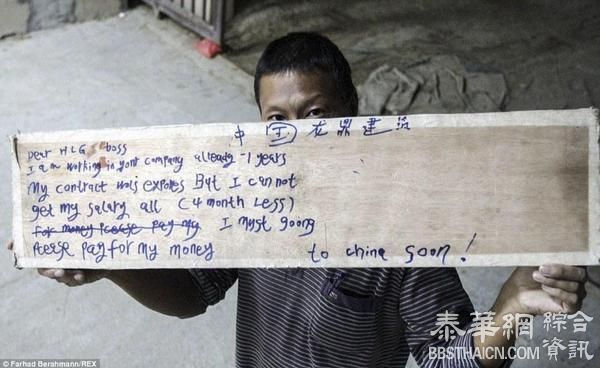 中国龙鼎建筑
Dear HLG boss
I am working in yont company already 1 years
My contract wols expores But I can not
get my salary all (4 month Less)
for money Pleese pay my I myst goong
Pleese pay for my money to china soon!
© Farhad Berahmann/REX
泰華網 綜合資訊
BBSTHAICN.COM